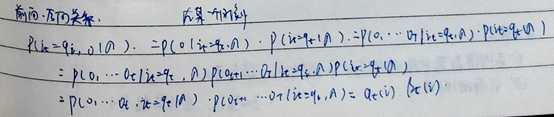 前向-后向关系.
P(iₜ=qᵢ,O|λ) =P(O|iₜ=qᵢ,λ)·P(iₜ=qᵢ|λ)=P(O₁…O_T|iₜ=qᵢ,λ)·P(iₜ=qᵢ|λ)
=P(O₁…Oₜ|iₜ=qᵢ,λ)P(Oₜ₊₁…O_T|iₜ=qᵢ,λ)P(iₜ=qᵢ|λ)
=P(O₁…Oₜ,iₜ=qᵢ|λ)·P(Oₜ₊₁…O_T|iₜ=qᵢ,λ)=αₜ(i)βₜ(i).